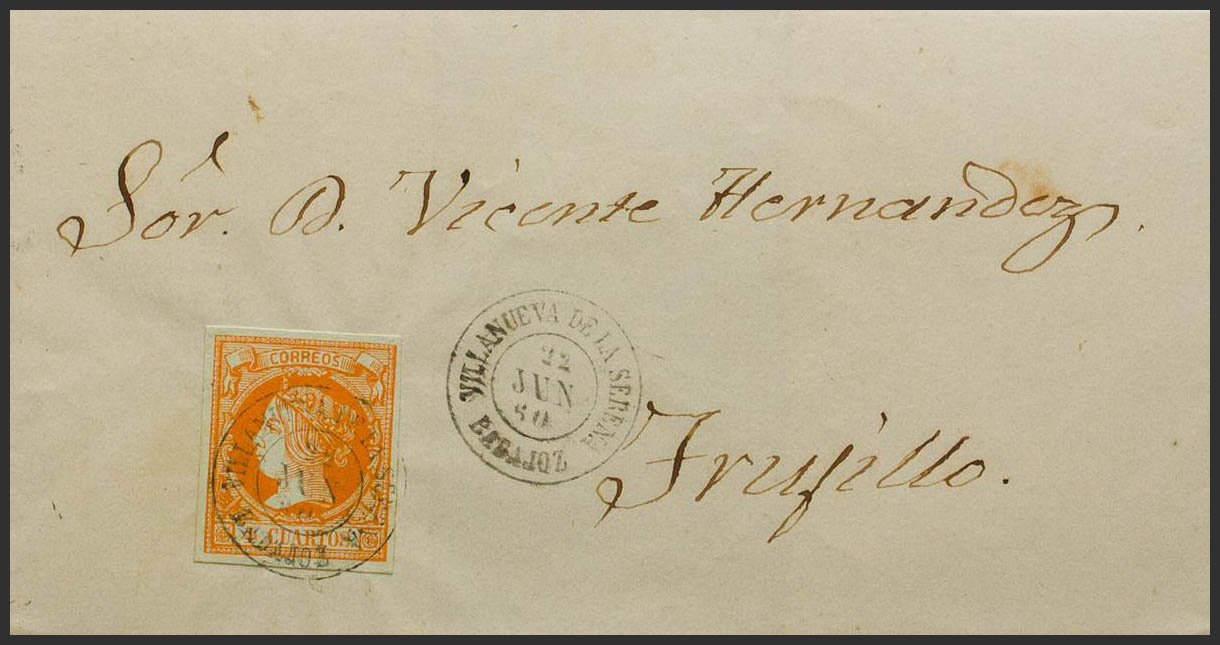 Sór. D. Vicente Hernandez.
Trujillo.
VILLANUEVA DE LA SERENA
22
JUN
60
BADAJOZ
CORREOS
CUARTOS
BADAJOZ